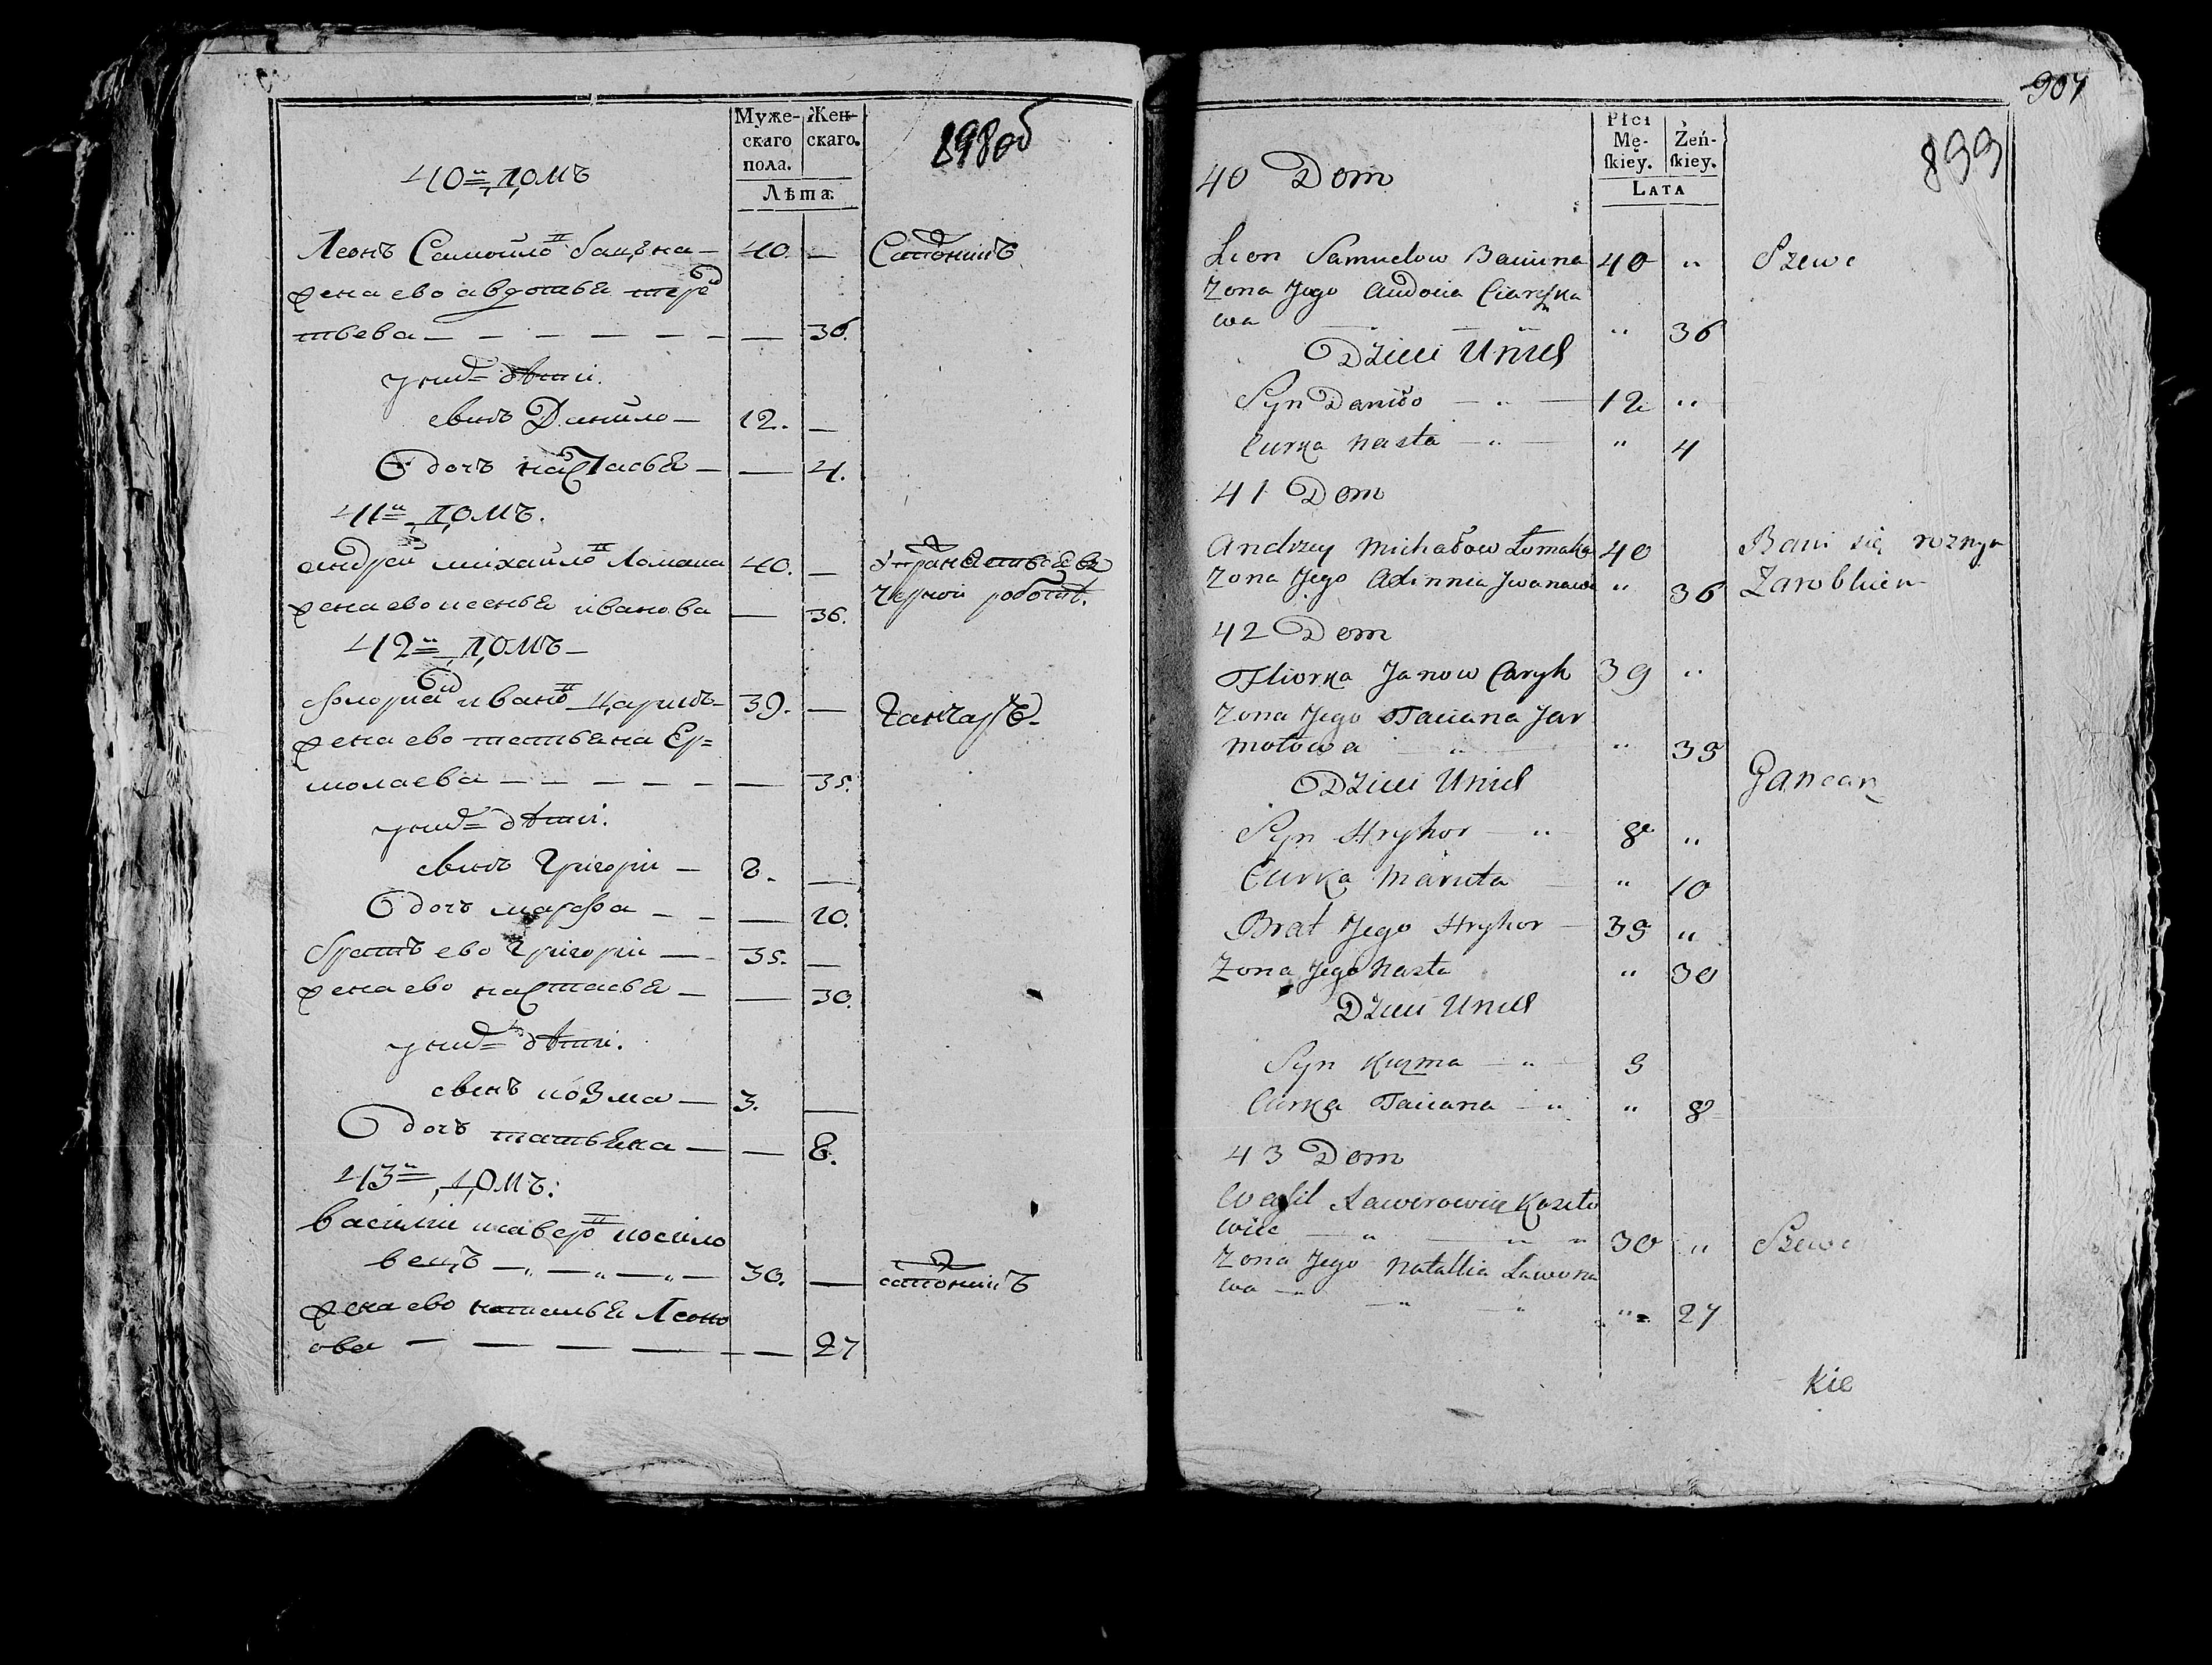 Муже-
скаго
пола.
Жен-
скаго.
Лѣта.
898об
40й домъ
Леонъ Самойло Бацѣна — 40. — Сапожникъ
жена ево авдотья тере
тьева — — — — — — — 36.
у нихъ дѣти.
сынъ Данило — 12. —
дочъ настасья — — 4.
41й домъ.
андрей михайло Ломака 40. —
черной работѣ.
жена ево ксенья иванова — 36.
42й домъ —
Флориа ивано Царикъ — 39. — Ганчаръ.
жена ево татьяна Ер=
молаева — — — — — — 35.
у нихъ дѣти.
сынъ Григори — 8. —
дочъ марфа — — — 10.
братъ ево Григори — 35. —
жена ево настасья — — 30.
у нихъ дѣти.
сынъ козма — 3. —
дочъ татьяна — — 8.
43й домъ:
василии ксаверо косило
вецъ — „ — „ — „ — 30. — сапожникъ
жена ево наталья Леоно
ова — — — — — — 27
904
Płci
Mę-
skiey.
Żeń-
skiey.
Lata
899
40 Dom
Lion Samuelow Baciina 40 „ Szewc
Zona Jego Audocia
wa „ 36
Dzieci Unich
Syn Daniło — „ — 12 „
Curka Nasta — „ — „ 4
41 Dom
Andrzey Michałow Łomaka 40 Bawi się roznym
Zona Jego Axinnia Jwanawa „ 36 Zarobkiem
42 Dom
Fliorka Janow Caryk 39 „
Zona Jego Taciana Jar
mołowa „ „ 35
Dzieci Unich Gancarz
Syn Hryhor — „ 8 „
Curka Maruta — „ 10
Brat Jego Hryhor — 35 „
Zona Jego Nasta „ 30
Dzieci Unich
Syn Kuzma — „ — 3
Curka Taciana — „ „ 8
43 Dom
Wasil Xawerowicz Koziło
wiec — „ — „ „ 30 „ Szewc
Zona Jego Natallia Lawona
wa — „ — „ — „ „ 27
kie